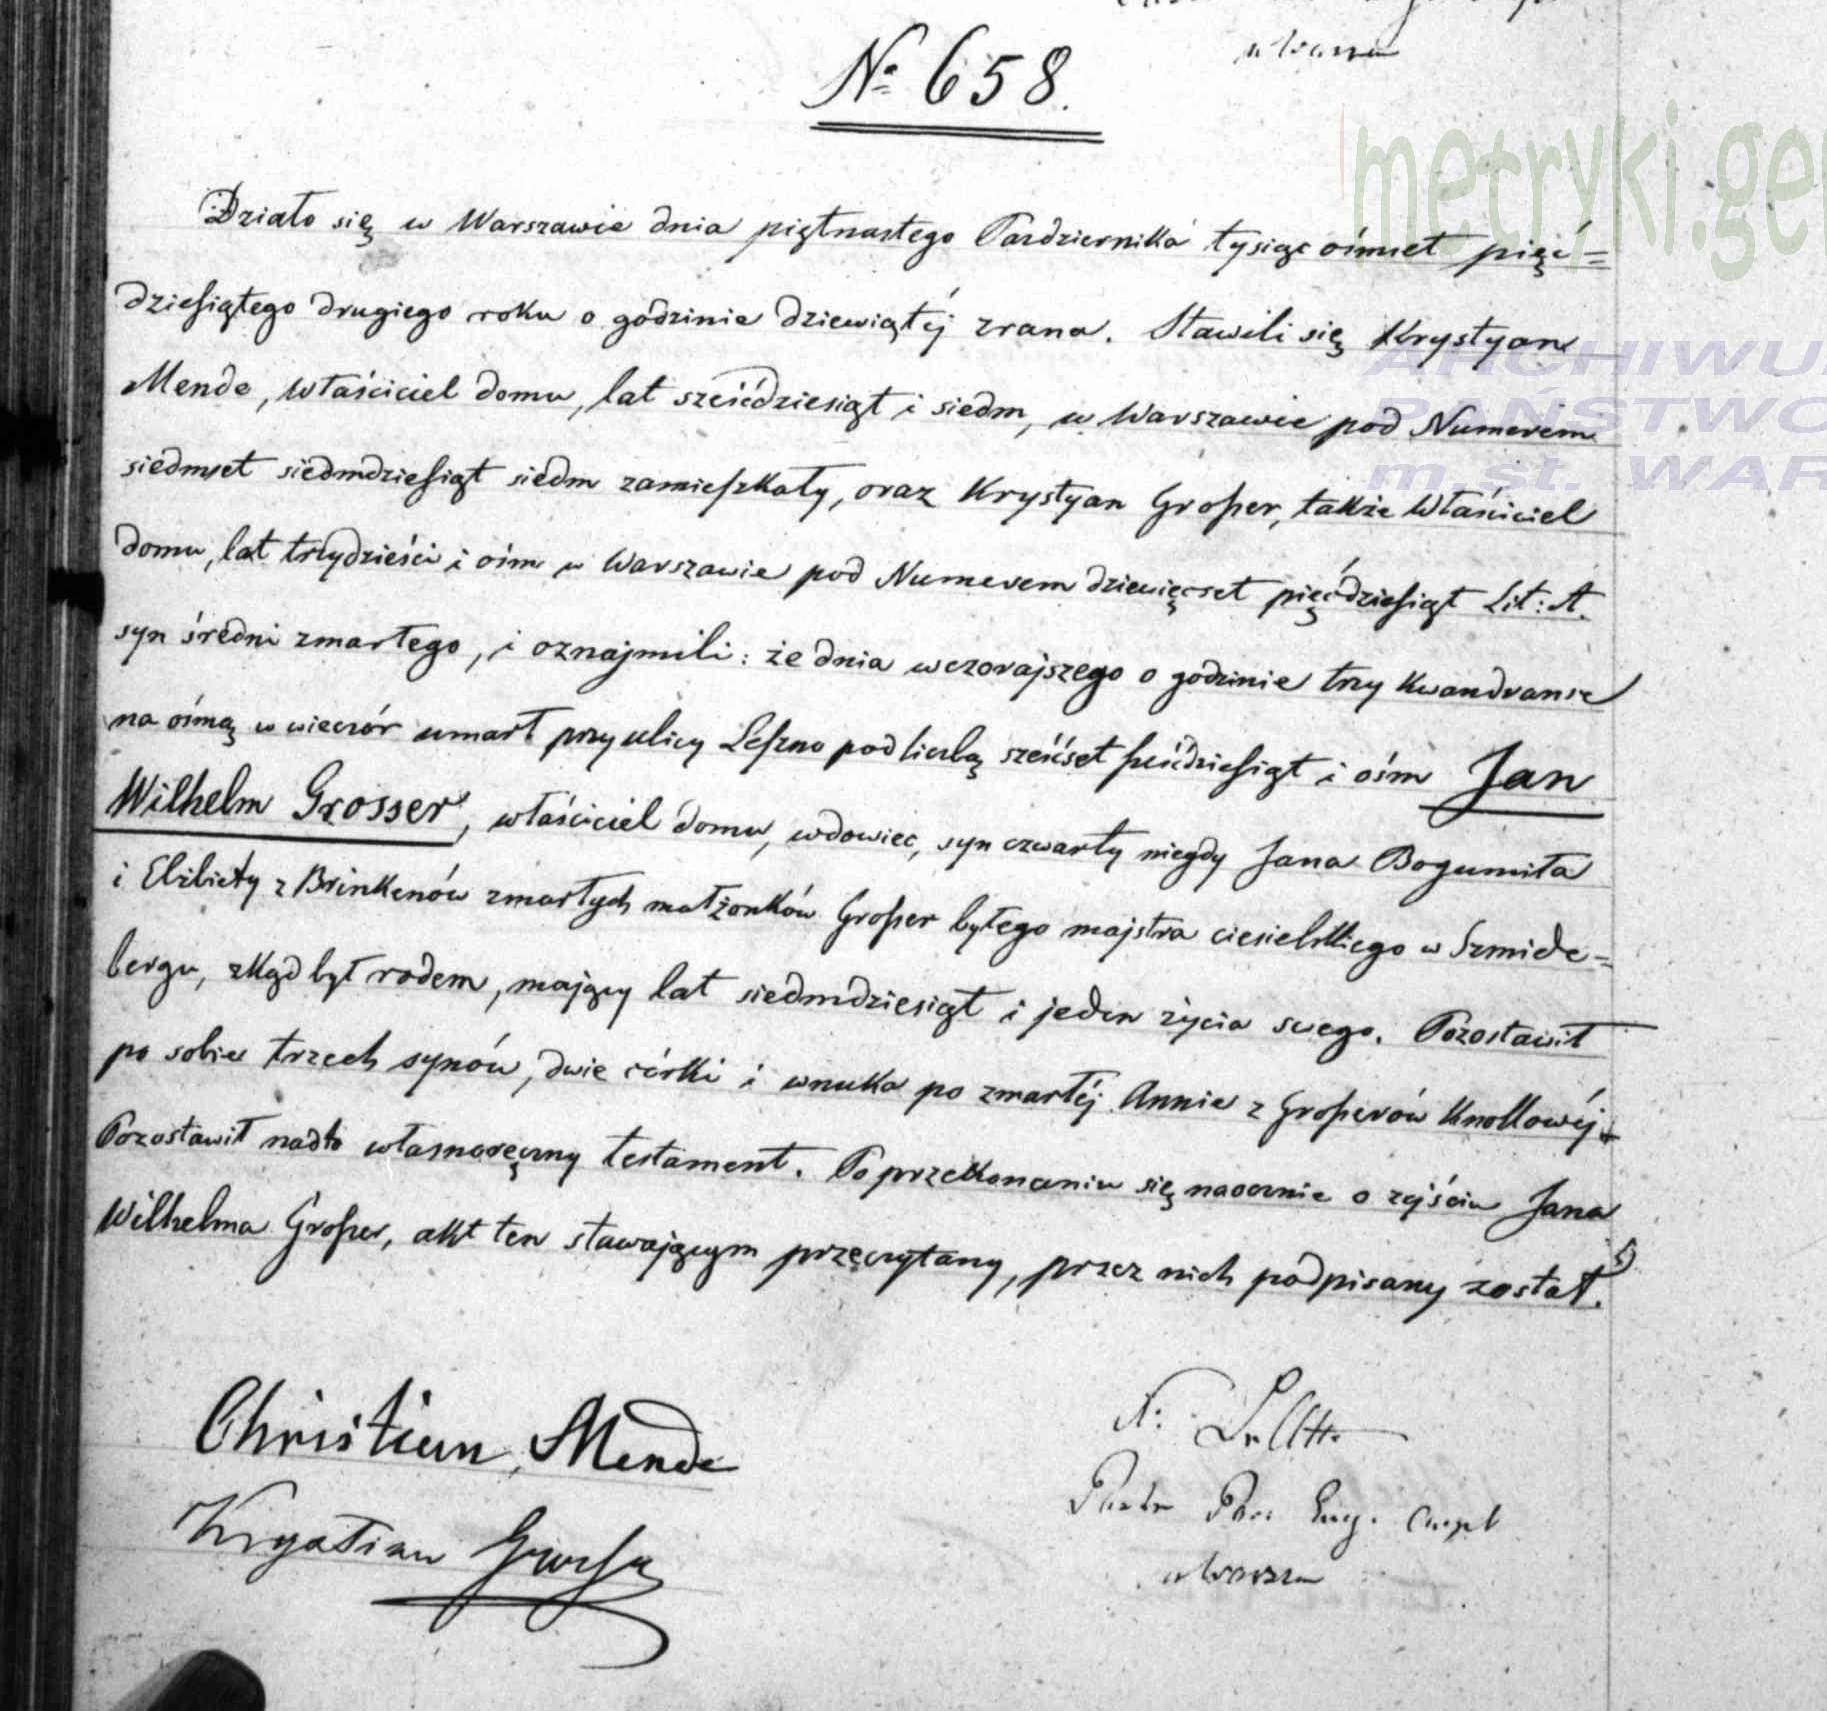 w Warsza
№ 658.
Działo się w Warszawie dnia piętnastego Pazdziernika tysiąc ośmset pięć=
dziesiątego drugiego roku o godzinie dziewiątéj zrana. Stawili się Krystyan
Mende, właściciel domu, lat sześćdziesiąt i siedm, w Warszawie pod Numerem
siedmset siedmdziesiąt siedm zamieszkały, oraz Krystyan Grosser, także Właściciel
domu, lat trzydzieści i ośm w Warszawie pod Numerem dziewięcset pięćdziesiąt Lit: A.
syn średni zmarłego, i oznajmili: że dnia wczorajszego o godzinie trzy kwandranse
na ósmą w wieczór umarł przy ulicy Leszno pod liczbą sześćset sześćdziesiąt i ośm Jan
Wilhelm Grosser, właściciel domu, wdowiec, syn czwarty niegdy Jana Bogumiła
i Elżbiety z Brinkenów zmarłych małżonków Grosser byłego majstra ciesielskiego w Szmide=
bergu, zkąd był rodem, mający lat siedmdziesiąt i jeden życia swego. Pozostawił
po sobie trzech synów, dwie córki i wnuka po zmarłéj Annie z Grosserów Knollowéj.
Pozostawił nadto własnoręczny testament. Po przekonaniu się naocznie o zejściu Jana
Wilhelma Grosser, akt ten stawającym przeczytany, przez nich podpisany został.
Christian Mende
Krystian Grosser
Pastor Par: Ewg. Augsb
w Warsza
metryki.ge
ARCHIWU
PAŃSTWO
m.st. WAR